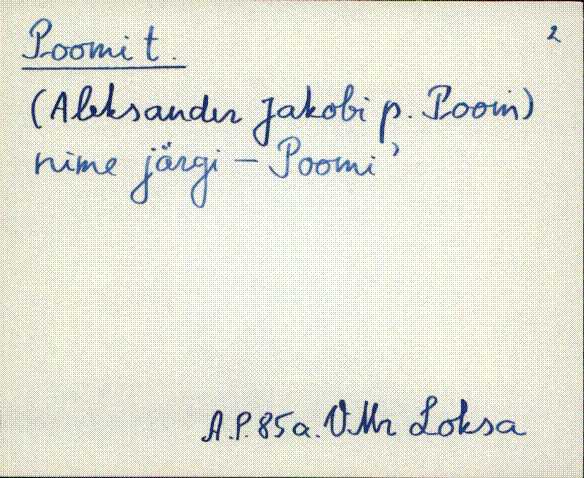 2
Poomi t.
(Aleksander Jakobi p. Poom)
nime järgi – Poomi'
A.P. 85a. VMr Loksa